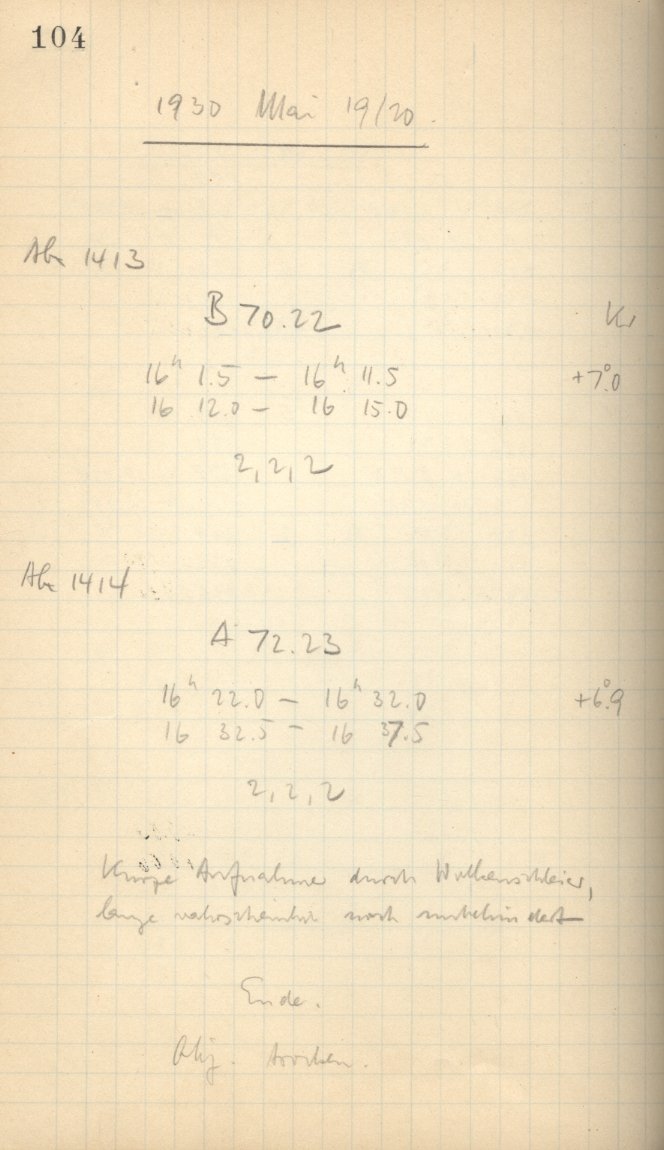 104
1930 Mai 19/20.
1413
B 70.22 Kr
16h 1.5 — 16h 11.5 +7°.0
16 12.0 — 16 15.0
2, 2, 2
1414
A 72.23
16h 22.0 — 16h 32.0 +6°.9
16 32.5 — 16 37.5
2, 2, 2
Kurze Aufnahme durch Wolkenschleier,
lange wahrscheinlich noch unbehindert
Ende.
Obj. trocken.